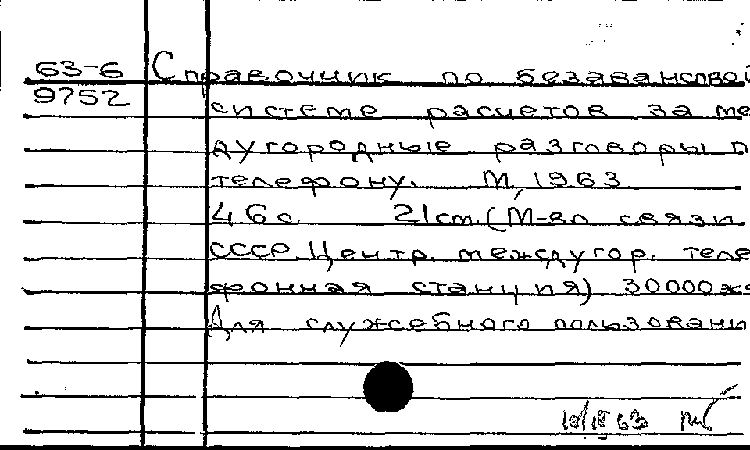 63-6 Справочник по безавансовой
9752 системе расчетов за ме
дугородные разговоры п
телефону. М, 1963
46с 21см. (М-во связи
СССР. Центр. междугор. теле
фонная станция) 30000экз
Для служебного пользовани
63